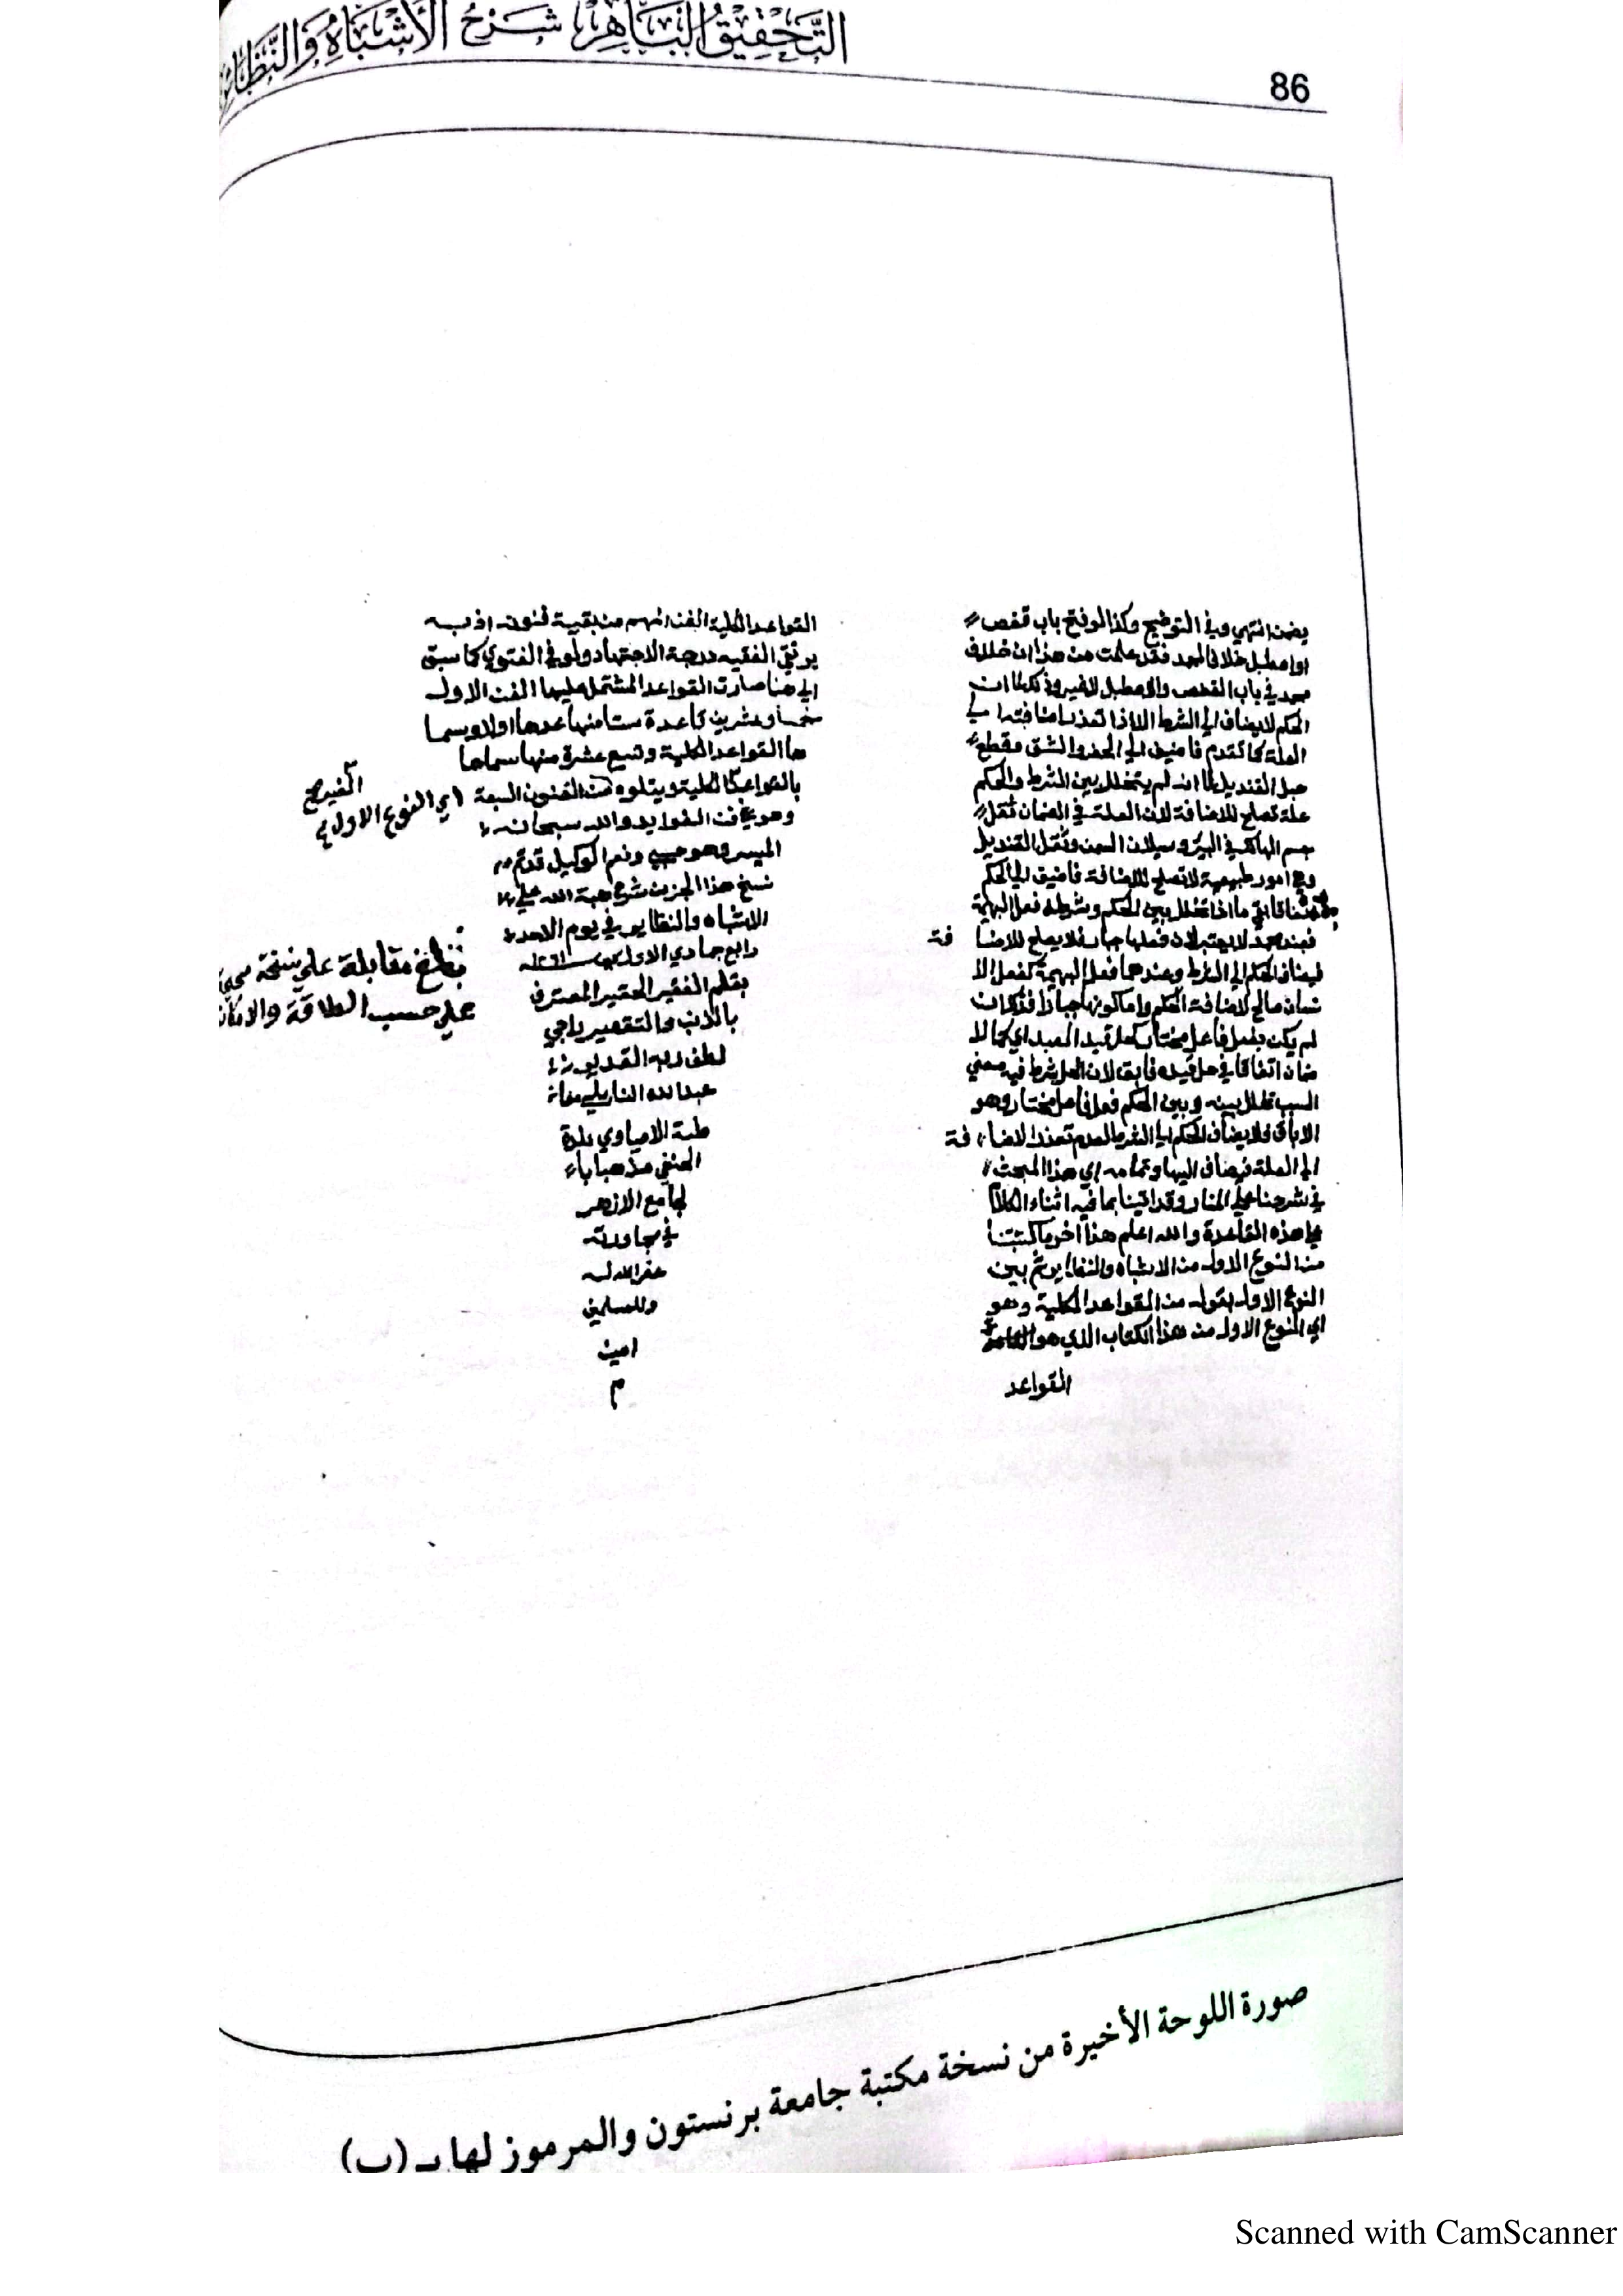 التحقيق الباهر شرح الأشباه والنظائر
86
يضمن انتهي وفي التوضيح وكذا لو فتح باب قفص
او اصطبل خلافا لمحمد فقد علمت من هذا ان خلاف
محمد في باب القفص والاصطبل لا غير وذلك لما ان
الحكم لا يضاف الي الشرط الا اذا تعذر اضافته الي
العلة كما تقدم فاضيف الي الحفر والشق وقطع
حبل القنديل لما انه لم يتخلل بين الشرط والحكم
علة تصلح للاضافة لان العلة في الضمان ثقل
جسم الهالك في البير وسيلان السمن وثقل القنديل
وهي امور طبيعية لا تصلح للاضافة فاضيق الي الحكم
ما اذا تخلل بين الحكم وشرطه فعل البهيمة
فعند محمد لا يعتبر لان فعلها جبار فلا يصلح للاضا فة
فيضاف الحكم الي الشرط وعندهما فعل البهيمة كفعل الا
نسان صالح لاضافة الحكم واما كونها جبارا فذلك ان
لم يكن بفعل فاعل مختار كحل قيد العبد اي كما لا
ضمان اتفاقا في حل قيده فابق لان الحل شرط فيه معني
السبب تخلل بينه وبين الحكم فعل فاعل مختار وهو
الاباق فلا يضاف الحكم الي الشرط لعدم تعذر الاضا فة
الي العلة فيضاف اليها وتمامه اي هذا المبحث
في شرحنا علي المنار وقد اتينا بما فيه اثناء الكلام
علي هذه القاعدة والله اعلم هذا اخر ما كتبنا
من النوع الاول من الاشباه والنظاير ثم بين
النوع الاول بقوله من القواعد الكلية وهو
اي النوع الاول من هذا الكتاب الذي هو
القواعد
القواعد الكلية الفن المهم من بقية فنونه اذ به
يرتقي الفقيه درجة الاجتهاد ولو في الفتوي كما سبق
الي هنا صارت القواعد المشتمل عليها الفن الاول
خمسا وعشرين قاعدة ستا منها عدها اولا وسما
ها القواعد الكلية وتسع عشرة منها سماها
بالقواعد الكلية ويتلوه من الفنون السبعة
وهو في فن الفوايد والله سبحانه
الميسر وهو حسبي ونعم الوكيل قد تم
نسخ هذا الجز من شرح هبة الله علي
الاشباه والنظاير في يوم الاحد
رابع جمادي الاول
بقلم الفقير الحقير المعترف
بالذنب والتقصير راجي
لطف ربه القدير
عبد الله
بلدة
الحنفي مذهبا
الجامع الازهر
في مجاورته
غفر الله له
وللمسلمين
امين
م
اي النوع الاول
بلغ مقابلة علي نسخة
علي حسب الطاقة والامكان
صورة اللوحة الأخيرة من نسخة مكتبة جامعة برنستون والمرموز لها بـ (ب)
Scanned with CamScanner